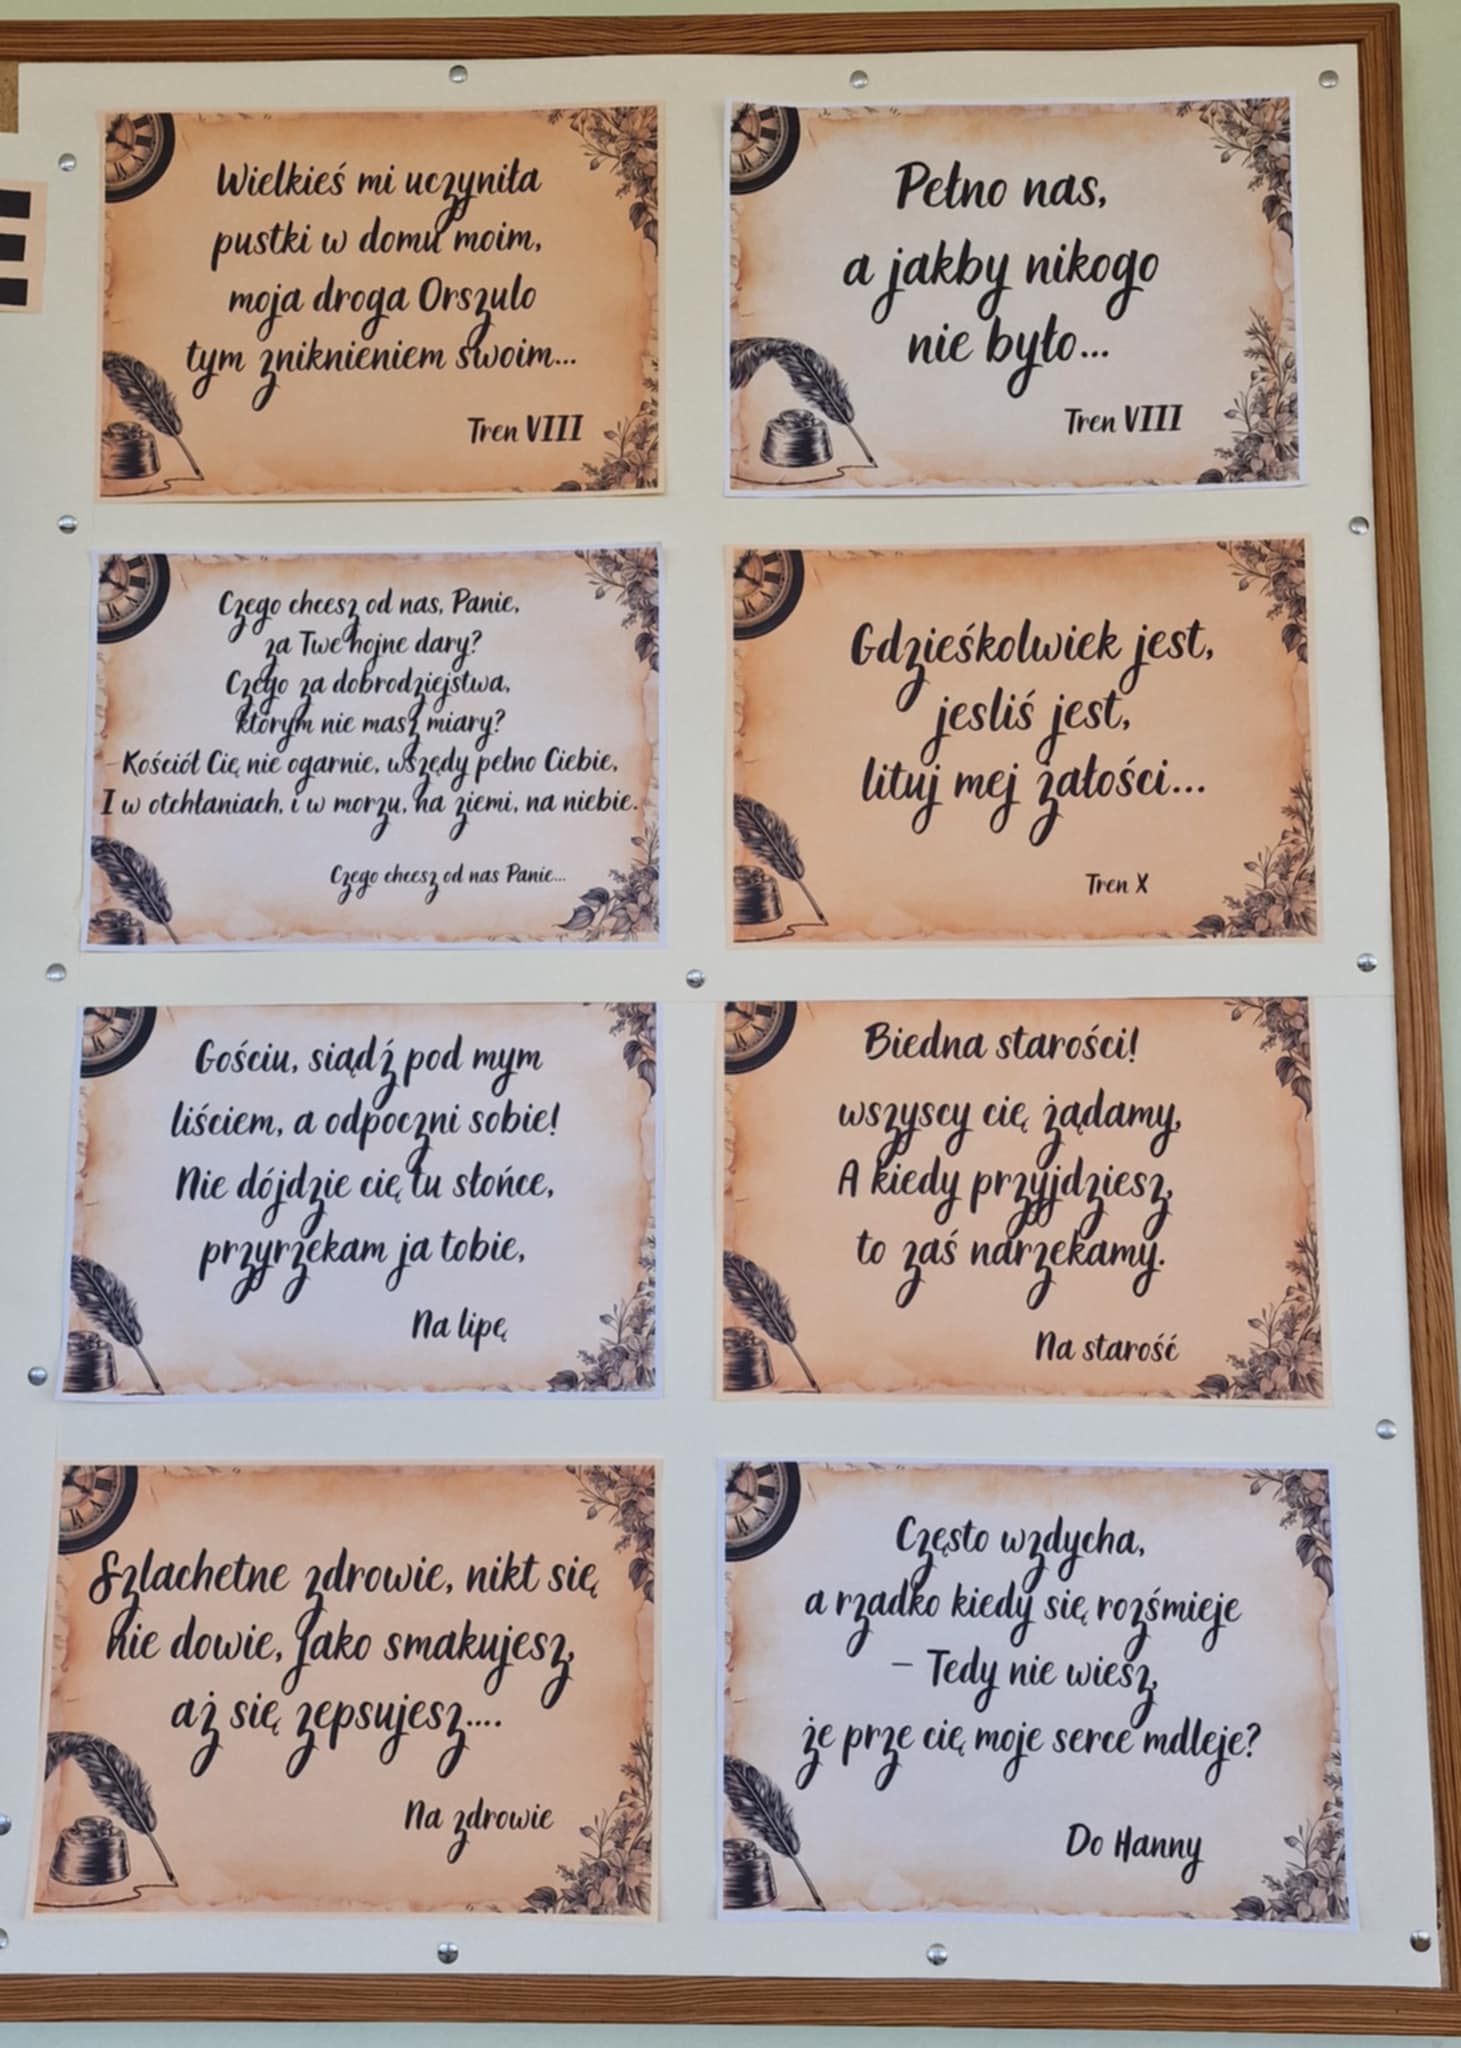 Wielkieś mi uczyniła
pustki w domu moim,
moja droga Orszulo
tym zniknieniem swoim...
Tren VIII
Pełno nas,
a jakby nikogo
nie było...
Tren VIII
Czego chcesz od nas, Panie,
za Twe hojne dary?
Czego za dobrodziejstwa,
którym nie masz miary?
Kościół Cię nie ogarnie, wszędy pełno Ciebie,
I w otchłaniach, i w morzu, na ziemi, na niebie.
Czego chcesz od nas Panie...
Gdzieśkolwiek jest,
jesliś jest,
lituj mej żałości...
Tren X
Gościu, siądź pod mym
liściem, a odpoczni sobie!
Nie dójdzie cię tu słońce,
przyrzekam ja tobie,
Na lipę
Biedna starości!
wszyscy cię żądamy,
A kiedy przyjdziesz,
to zaś narzekamy.
Na starość
Szlachetne zdrowie, nikt się
nie dowie, Jako smakujesz,
aż się zepsujesz....
Na zdrowie
Często wzdycha,
a rzadko kiedy się rozśmieje
– Tedy nie wiesz,
że prze cię moje serce mdleje?
Do Hanny